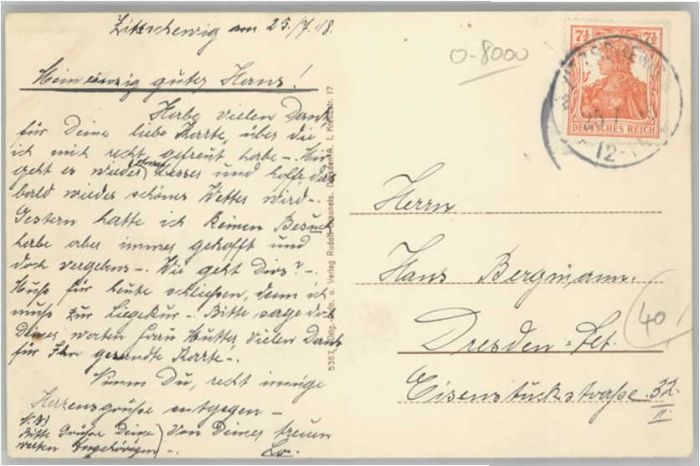 Zitzschewig am 25./7.18.
Mein einzig guter Hans!
Habe vielen Dank
für Deine liebe Karte, über die
ich mich recht gefreut habe -. Mir
geht es wieder etwas besser und hoffe das
bald wieder schönes Wetter wird -
Gestern hatte ich keinen Besuch
habe aber immer gehofft und
doch vergebens -. Wie geht Dirs? -
Muss für heute schliessen, denn ich
muss zur Liegekur - Bitte sage doch
Deiner werten Frau Mutter vielen Dank
für Ihre gesandte Karte -.
Nimm Du, recht innige
Herzensgrüsse entgegen -
Von Deiner treuen
N.B.
Bitte Grüsse Deine
werten Angehörigen -
5367 Orig.-Aufn. u. Verlag Rudolf Dresden-A. 17
0-8000
7½ 7½
DEUTSCHES REICH
12-1
Herrn
Hans Bergmann.
Dresden-
Eisenstuckstraße. 32.
II
40